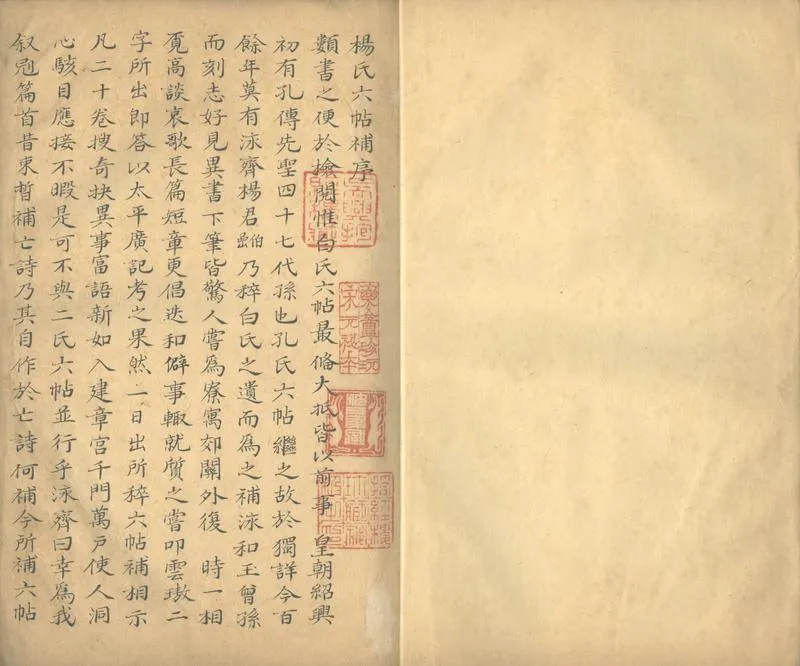 楊氏六帖補序
類書之便於撿閱惟白氏六帖最俻大抵皆以前事 皇朝紹興
初有孔傳先聖四十七代孫也孔氏六帖繼之故於獨詳今百
餘年莫有泳齊楊君伯嵒乃稡白氏之遺而爲之補泳和王曾孫
而刻志好見異書下筆皆驚人嘗爲寮寓郊關外復 時一相
覔高談哀歌長篇短章更倡迭和僻事輙就質之嘗叩雲璈二
字所出即答以太平廣記考之果然一日出所稡六帖補相示
凡二十卷搜奇抉異事富語新如入建章宫千門萬户使人洞
心駭目應接不暇是可不與二氏六帖並行乎泳齊曰幸爲我
叙冠篇首昔束晳補亡詩乃其自作於亡詩何補今所補六帖